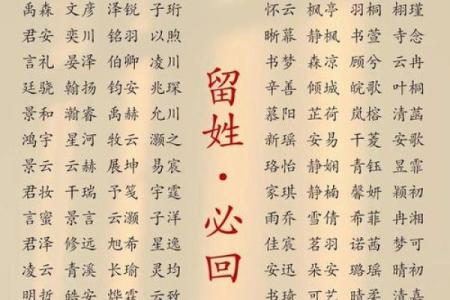 禹森 文彦 泽锐 子珩
君安 奕川 铭羽 以煦
言礼 晏泽 伯卿 凌川
廷骁 翰扬 钧安 兆琛
景和 瀚睿 禹赫 允川
鸿宇 星河 牧云 灏之
景云 云赫 展坤 易宸
君妄 干瑞 予笺 宇霆
言蜜 景言 云灏 子洋
君泽 修远 旭希 星逸
凌云 青溪 长瑜 灵均
明哲 皓安 烨霖
留姓·必回
怀云 枫亭 羽桐 栩瑾
晰慕 静枫 书萱 寺念
书梦 静凉 顾兮 云冉
辛善 倾城 皖歌 叶桐
慕阳 芷荷 岚榕 清菡
新瑶 安易 干菱 安歌
珞怡 静娴 青钰 昱霏
家琪 静楠 馨妍 颖初
雨乔 雪倩 希菲 冉湘
佳宸 茗羽 诺茜 梦可
安迅 朵安 璐瑶 晴初
书琦 可艺